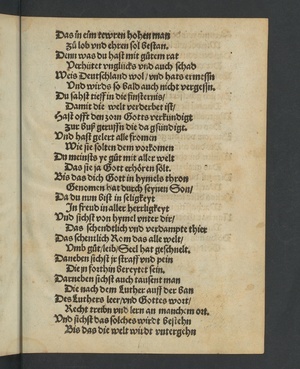 Das in eim tewren hohen man
Zů lob vnd ehren sol bestan.
Denn was du hast mit gůtem rat
Verhůtet vnglücks vnd auch schad
Weis Deutschland wol / vnd hats ermessn
Vnd wirds so bald auch nicht vergessn.
Du sahst tieff in die finsternis /
Damit die welt verderbet ist /
Hast offt den zorn Gotts verkündigt
Zur bůß geruffn die da gsündigt.
Vnd hast gelert alle fromen
Wie sie solten dem vorkomen
Du meinsts ye gůt mit aller welt
Das sie ja Gott erhören sölt.
Bis das dich Gott in hymels thron
Genomen hat durch seynen Son /
Da du nun bist in seligkeyt
In freud in aller herrligkeyt
Vnd sichst von hymel vnter dir /
Das schendtlich vnd verdampte thier
Des schentlich Rom das alle welt /
Vmb gůt / leib / Seel hat geschnelt.
Daneben sichst jr straff vnd pein
Die jn sotthin bereytet sein.
Darneben sichst auch tausent man
Die nach dem Luther auff der ban
Des Luthers leer / vnd Gottes wort /
Recht treibn vnd lern an manchem ort.
Vnd sichst das solches wirdt bestehn
Bis das die welt wirdt vntergehn